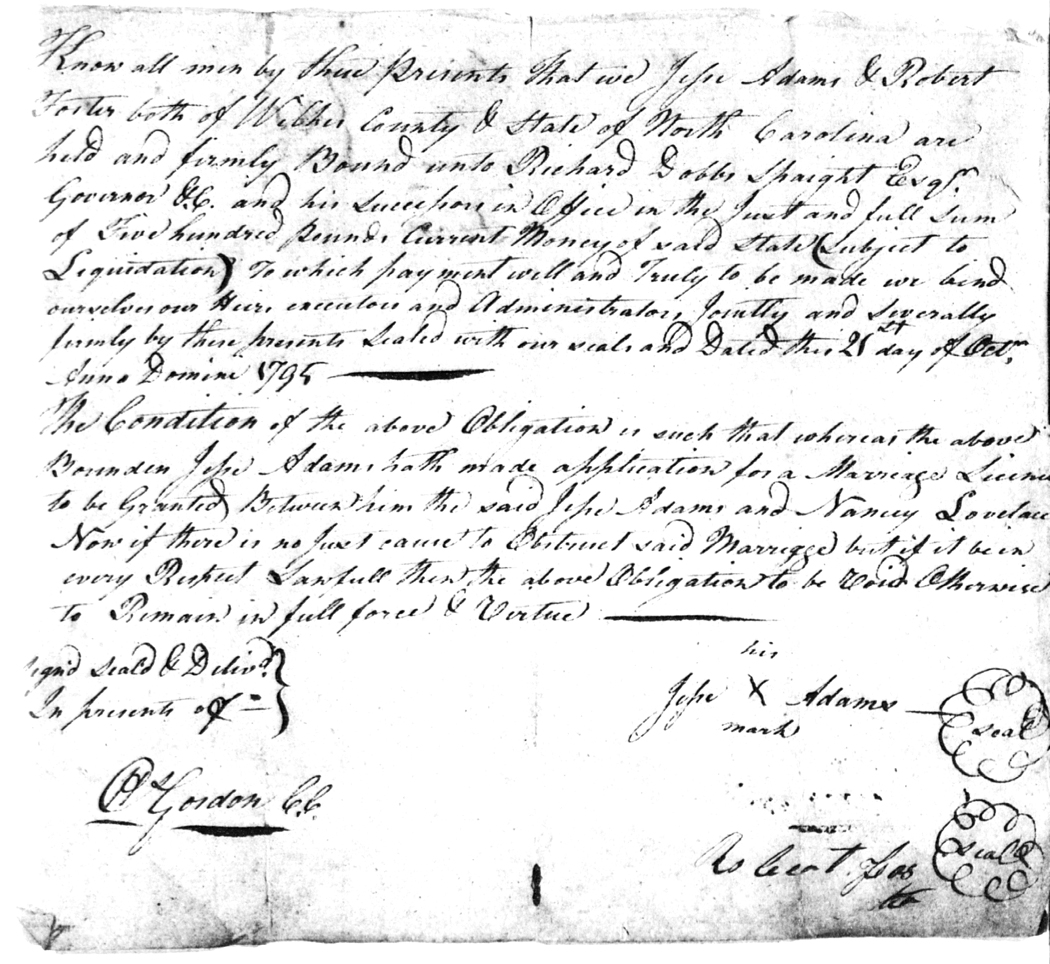 Know all men by these presents that we Jesse Adams & Robert
Foster both of Wilkes County & State of North Carolina are
held and firmly Bound unto Richard Dobbs Spaight Esqr.
Governor &C. and his successors in Office in the Just and full sum
of Five hundred pounds Current Money of said State (Subject to
Liquidation) To which payment well and Truly to be made we bind
ourselves our Heirs executors and Administrators, Jointly and severally
firmly by these presents Sealed with our seals and Dated this 21st day of Octr.
Anno Domini 1795
The Condition of the above Obligation is such that whereas the above
Bounden Jesse Adams hath made application for a Marriage Licence
to be Granted Between him the said Jesse Adams and Nancy Lovelace
Now if there is no Just cause to Obstruct said Marriage but if it be in
every Respect Lawfull then the above Obligation to be Void Otherwise
to Remain in full force & Virtue
Signd Seald & Delivd.
In presents off
his
Jesse X Adams seal
mark
Gordon C.C.
Robert Fos seale
ter